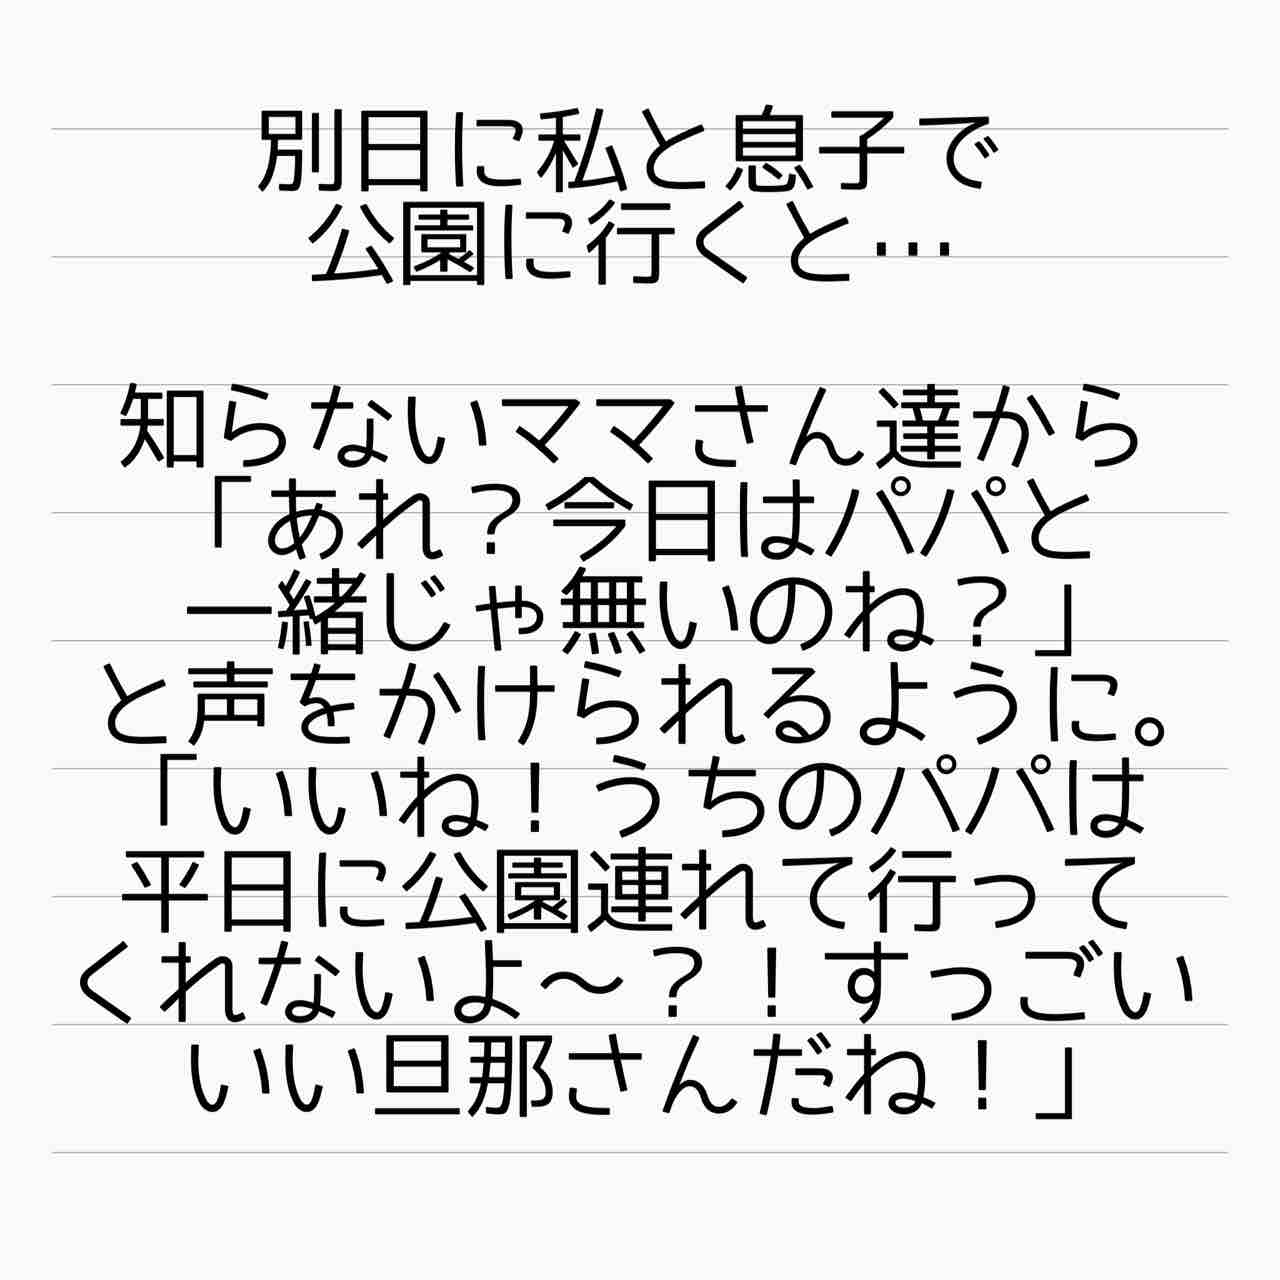 別日に私と息子で
公園に行くと…
知らないママさん達から
「あれ？今日はパパと
一緒じゃ無いのね？」
と声をかけられるように。
「いいね！うちのパパは
平日に公園連れて行って
くれないよ〜？！すっごい
いい旦那さんだね！」